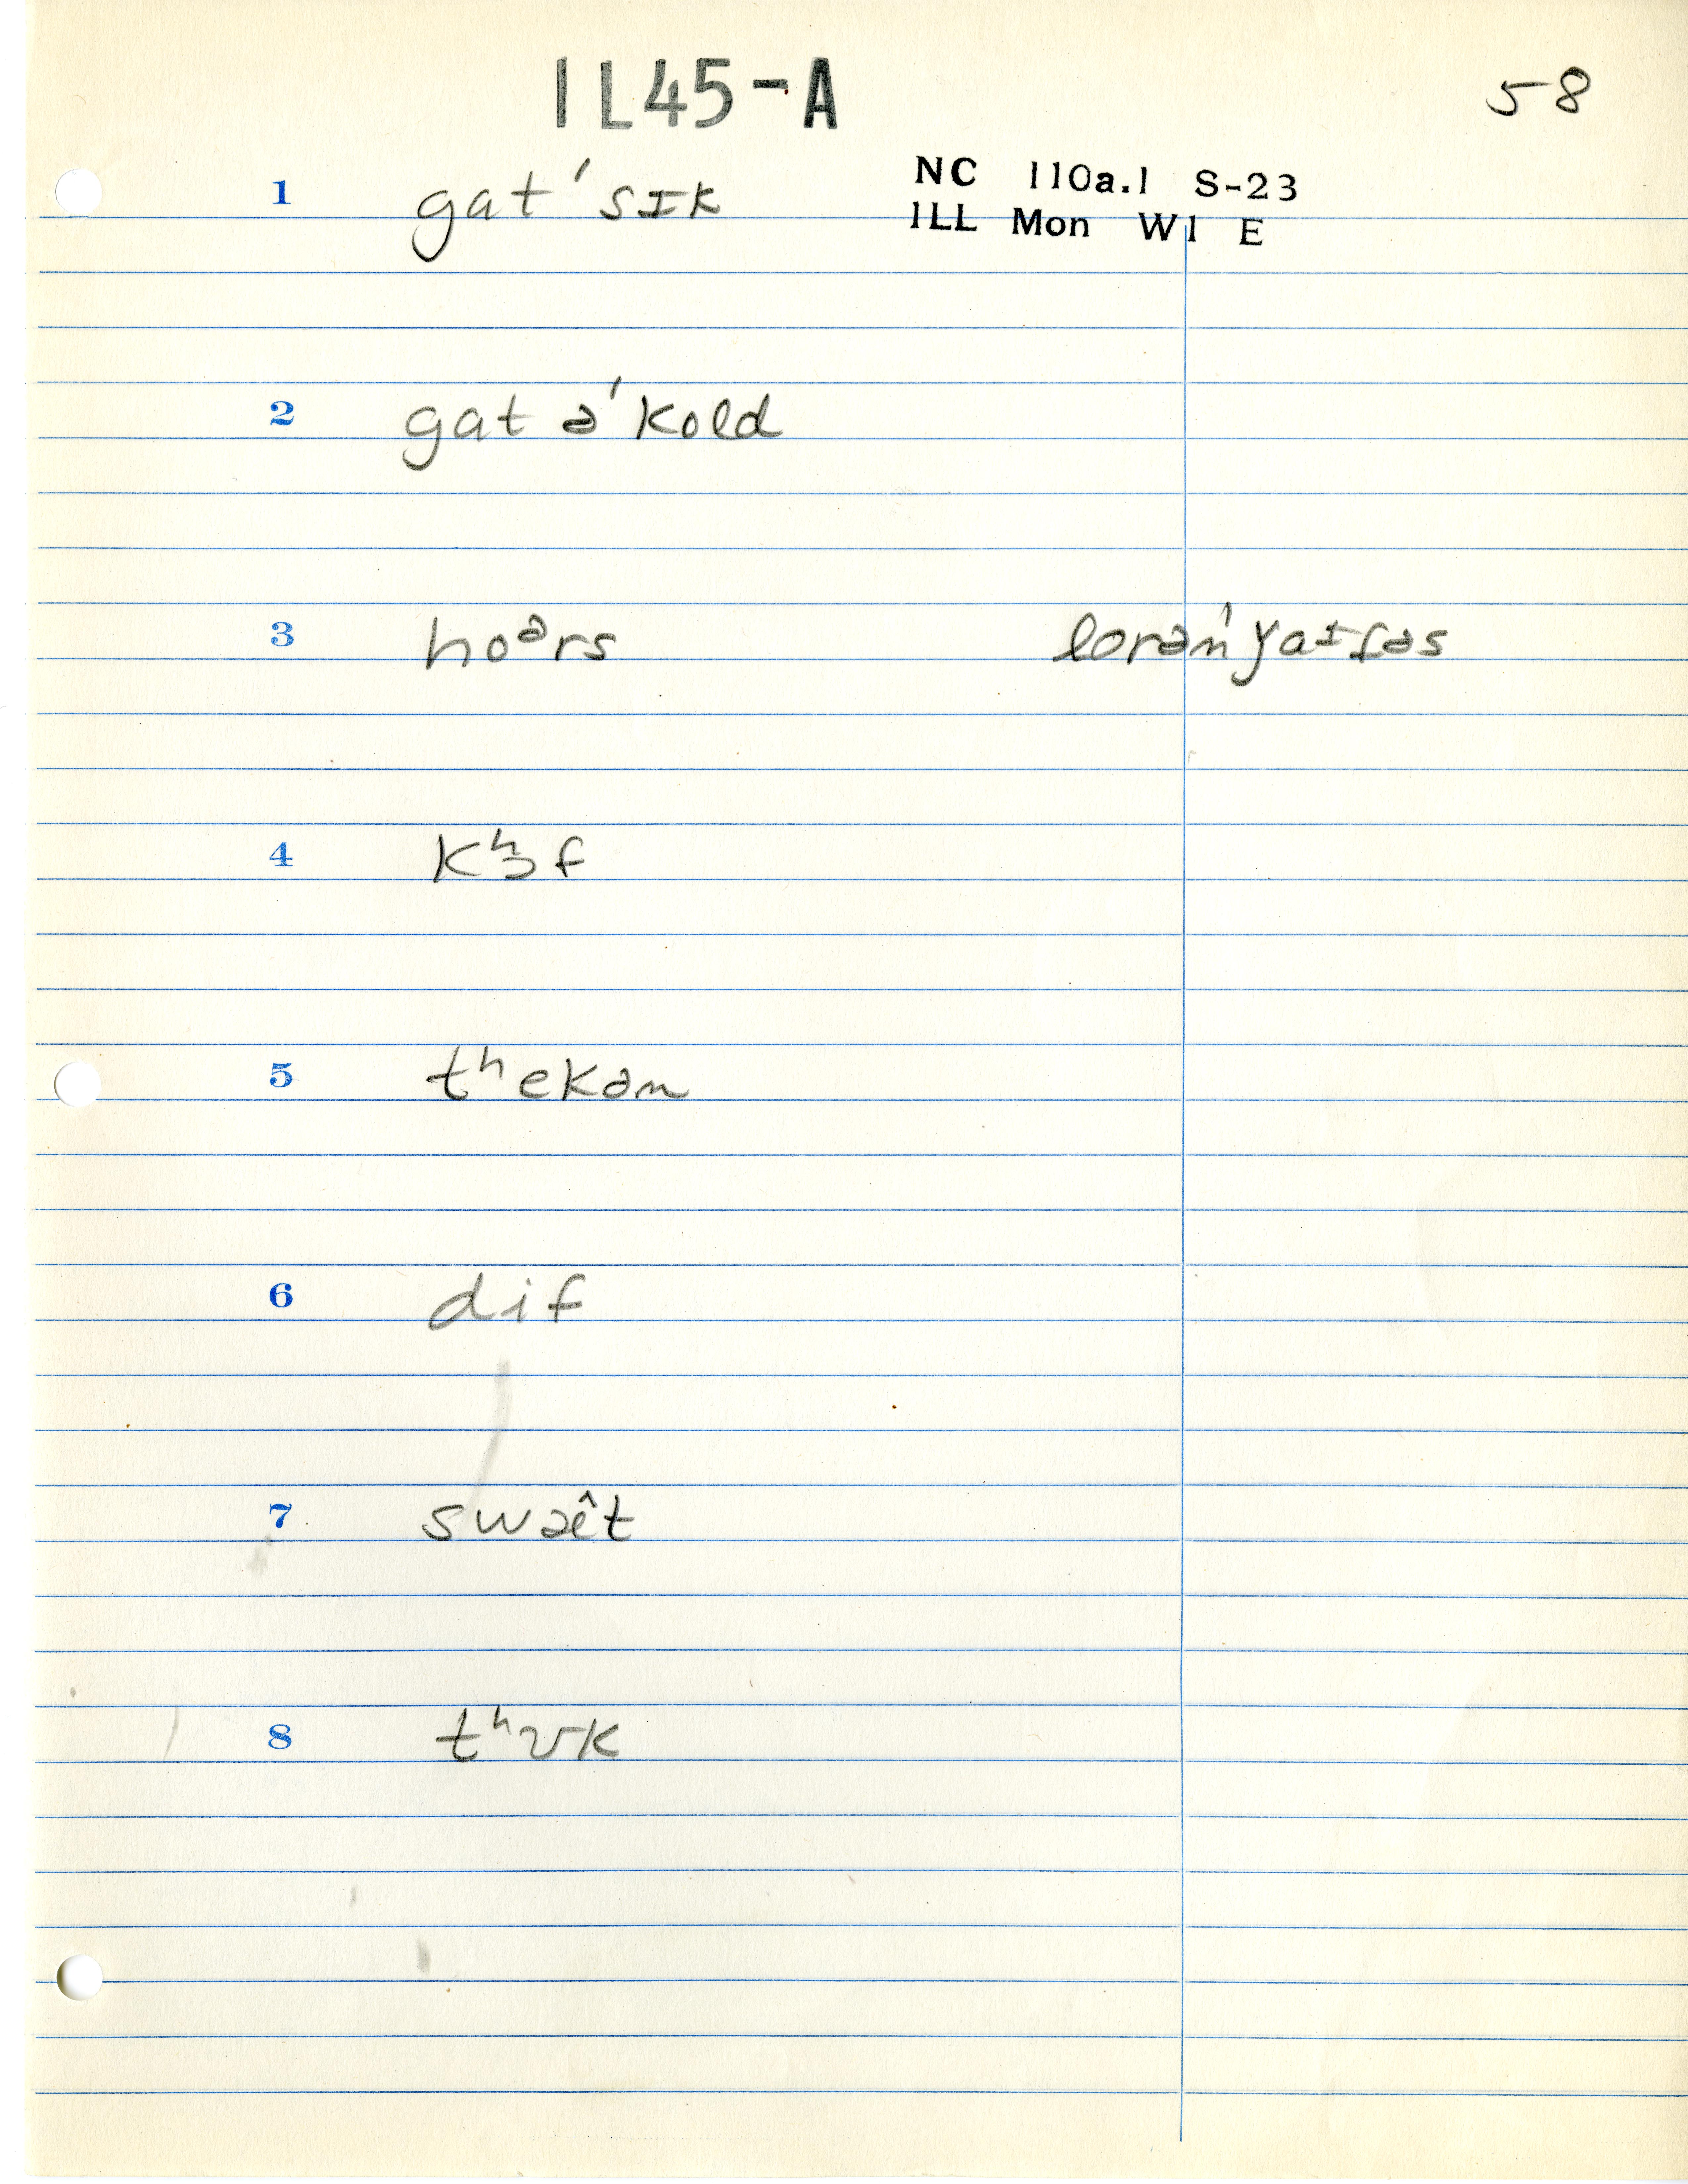 IL45-A
58
NC 110a.1 S-23
ILL Mon W1 E
1 gat ˈsɪk
2 gat ə ˈkold
3 hoᵊrs lorənˈɣaɪtəs
4 kʰɔf
5 tʰekən
6 dif
7 swəêt
8 tʰʊk